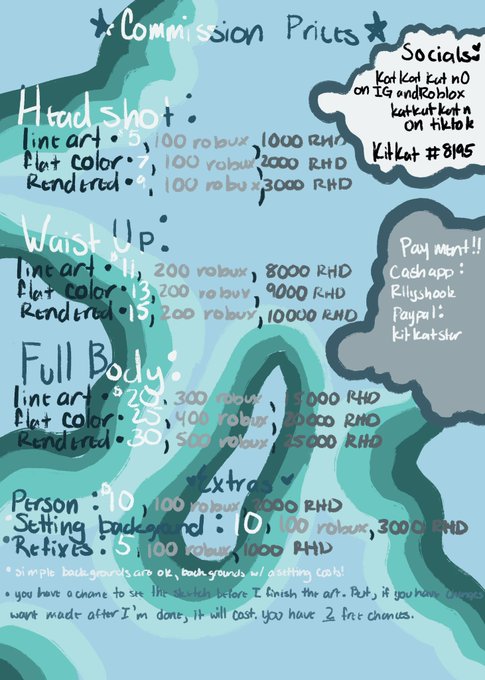 Commission Prices
Socials
Kat Kat Kat n0
on IG and Roblox
katkatkatn
on tiktok
KitKat #8195
Headshot:
line art • $5, 100 robux, 1000 RHD
flat color • 7, 100 robux, 2000 RHD
Rendered • 9, 100 robux, 3000 RHD
Waist Up:
line art • $11, 200 robux, 8000 RHD
flat color • 13, 200 robux, 9000 RHD
Rendered • 15, 200 robux, 10000 RHD
Payment!!
Cashapp:
Rllyshook
Paypal:
kitkatstar
Full Body:
line art • $20, 300 robux, 15000 RHD
flat color • 25, 400 robux, 20000 RHD
Rendered • 30, 500 robux, 25000 RHD
Extras
Person: $10, 100 robux, 2000 RHD
Setting background: 10, 100 robux, 3000 RHD
Refixes: 5, 100 robux, 1000 RHD
• simple backgrounds are ok, backgrounds w/ a setting costs!
• you have a chance to see the sketch before I finish the art. But, if you have changes
want made after I'm done, it will cost. you have 2 free chances.